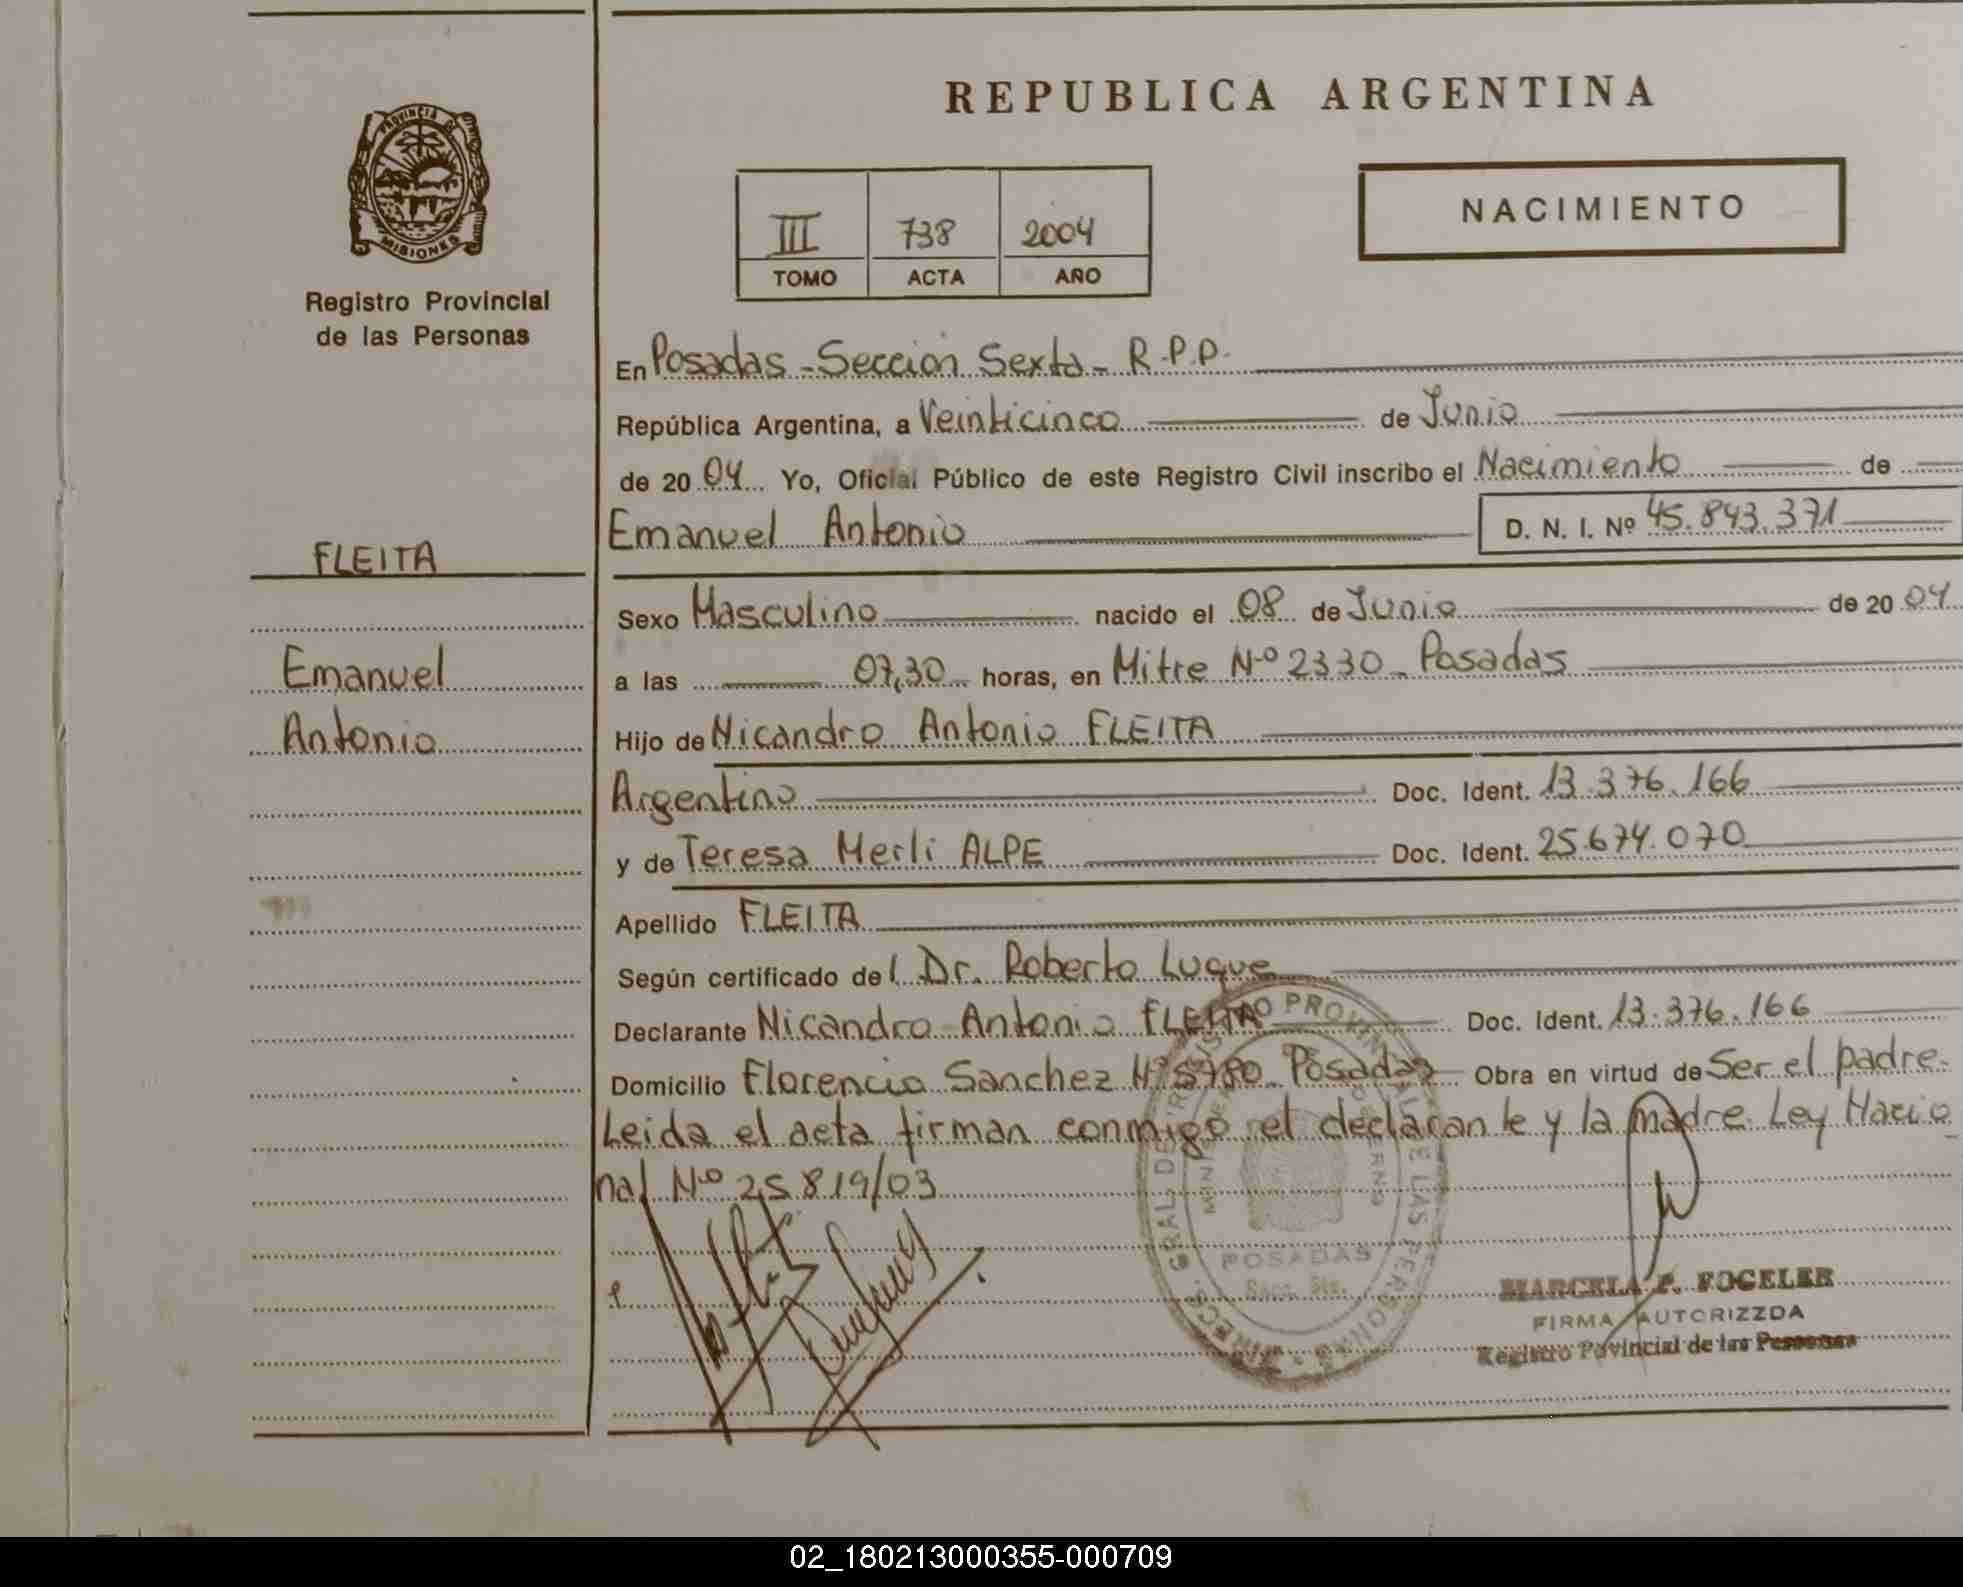 REPUBLICA ARGENTINA
PROVINCIA DE
MISIONES
Registro Provincial
de las Personas
III 738 2004
TOMO ACTA AÑO
NACIMIENTO
En Posadas - Sección Sexta - R.P.P.
República Argentina, a Veinticinco de Junio
de 2004 Yo, Oficial Público de este Registro Civil inscribo el Nacimiento de
Emanuel Antonio D. N. I. Nº 45.843.371
FLEITA
Emanuel
Antonio
Sexo Masculino nacido el 08 de Junio de 2004
a las 07,30 horas, en Mitre Nº 2330 - Posadas
Hijo de Nicandro Antonio FLEITA
Argentino Doc. Ident. 13.376.166
y de Teresa Merli ALPE Doc. Ident. 25.674.070
Apellido FLEITA
Según certificado del Dr. Roberto Luque
Declarante Nicandro Antonio FLEITA Doc. Ident. 13.376.166
Domicilio Florencio Sanchez Nº 5780 Posadas Obra en virtud de Ser el padre.
Leida el acta firman conmigo el declarante y la madre. Ley Nacio
nal Nº 25819/03
POSADAS
Secc. 6ta.
MARCELA P. FOGELER
FIRMA AUTORIZZDA
Registro Povincial de las Personas
02_180213000355-000709